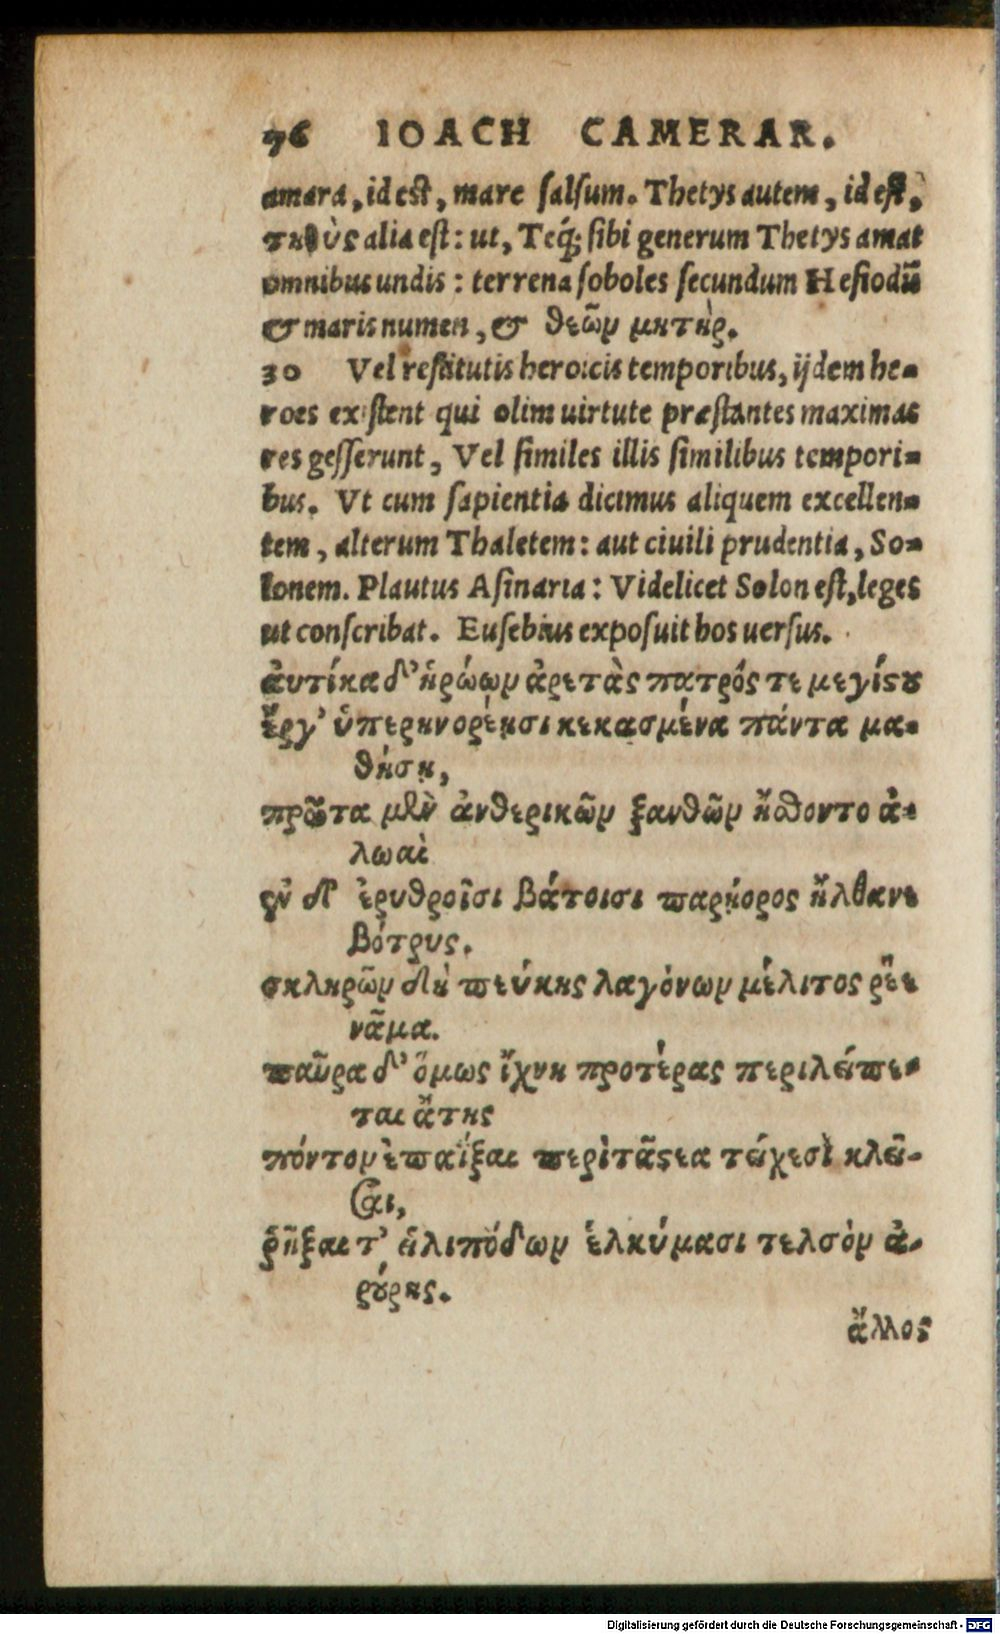 76 IOACH CAMERAR.
amara, id est, mare salsum. Thetys autem, id est,
τηθὺς alia est: ut, Teq́; sibi generum Thetys amat
omnibus undis: terrena soboles secundum Hesiodũ
& maris numen, & θεῶμ μητὴρ.
30 Vel restitutis heroicis temporibus, ijdem he-
roes existent qui olim uirtute præstantes maximas
res gesserunt, Vel similes illis similibus tempori-
bus. Vt cum sapientia dicimus aliquem excellen-
tem, alterum Thaletem: aut ciuili prudentia, So-
lonem. Plautus Asinaria: Videlicet Solon est, leges
ut conscribat. Eusebius exposuit hos uersus.
ἀυτίκα δ' ἡρώωμ ἀρετὰς πατρός τε μεγίςου
ἔργ' ὑπερηνορέῃσι κεκασμένα πάντα μα-
θήσῃ,
πρῶτα μὲν ἀνθερικῶμ ξανθῶμ ἤθοντο ἀ-
λωαὶ
ἐν δ' ἐρυθροῖσι βάτοισι παρῄορος ἤλθανε
βότρυς.
σκληρῶμ δὴ πεύκης λαγόνωμ μέλιτος ῥέε
νᾶμα.
παῦρα δ' ὅμως ἴχνη προτέρας περιλείπε-
ται ἄτης
πόντομ ἐπαΐξαι περὶ τ' ἄςεα τείχεσὶ κλεῖ-
σαι,
ῥῆξαι τ' εἱλιπόδωμ ἑλκύμασι τελσὸμ ἀ-
ρούρης.
ἄλλος
Digitalisierung gefördert durch die Deutsche Forschungsgemeinschaft - DFG